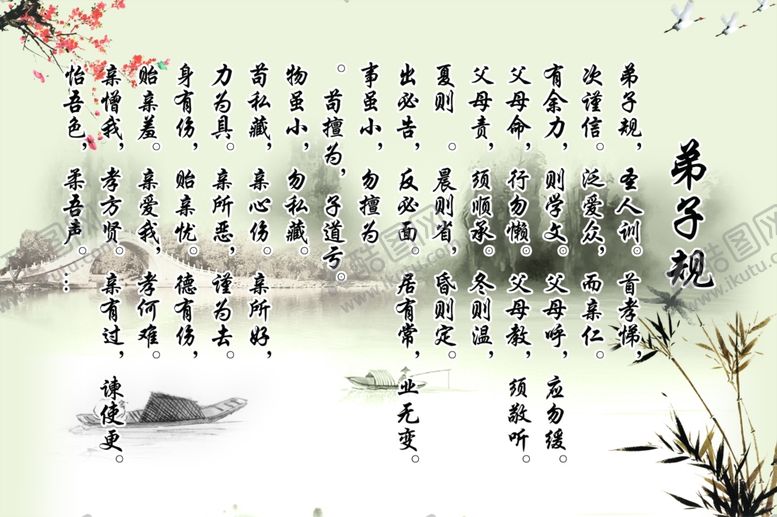 弟子规
弟子规，圣人训。首孝悌，
次谨信。泛爱众，而亲仁。
有余力，则学文。父母呼，应勿缓。
父母命，行勿懒。父母教，须敬听。
父母责，须顺承。冬则温，
夏则 。晨则省，昏则定。
出必告，反必面。居有常，业无变。
事虽小，勿擅为
。苟擅为，子道亏。
物虽小，勿私藏。
苟私藏，亲心伤。亲所好，
力为具。亲所恶，谨为去。
身有伤，贻亲忧。德有伤，
贻亲羞。亲爱我，孝何难。
亲憎我，孝方贤。亲有过，谏使更。
怡吾色，柔吾声。…
酷图网
www.ikutu.com